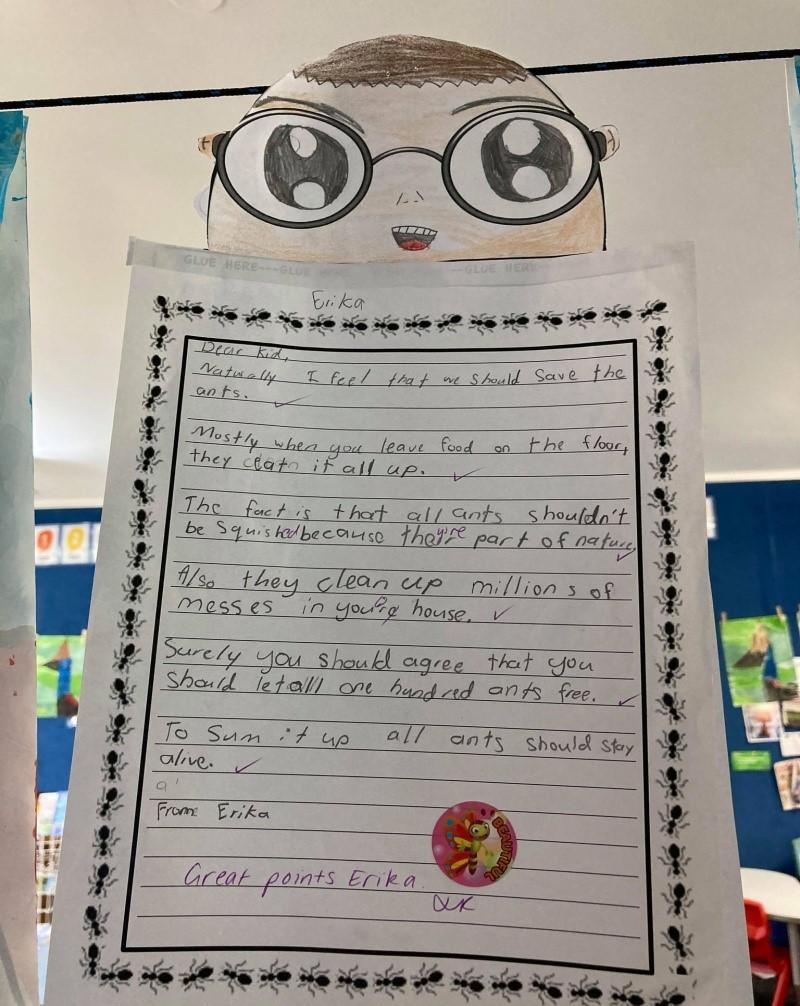 GLUE HERE---GLUE --GLUE HERE
Erika
Dear kid,
Naturally I feel that we should save the
ants.
Mostly when you leave food on the floor,
they eat it all up.
The fact is that all ants shouldn't
be squished because they're part of nature,
Also they clean up millions of
messes in your house.
Surely you should agree that you
should let all one hundred ants free.
To sum it up all ants should stay
alive.
From Erika
BEAUTIFUL
Great points Erika.
1 2